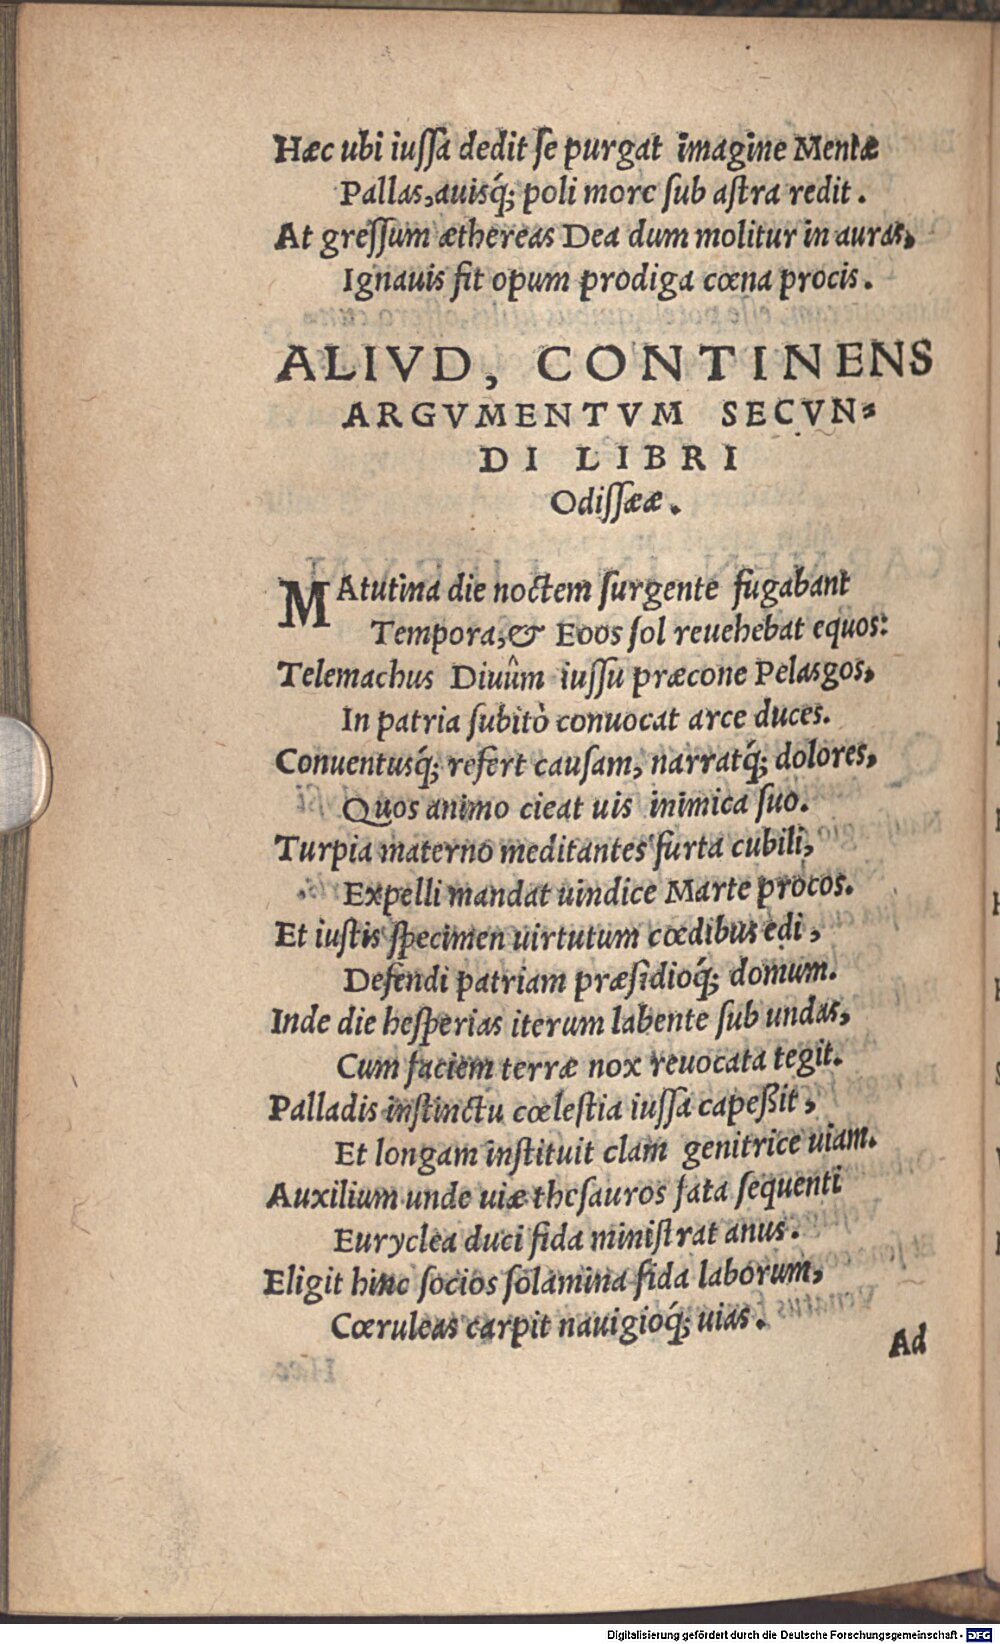 Hæc ubi iuſſa dedit ſe purgat imagine Mentæ
Pallas, auisq́; poli more ſub aſtra redit.
At greſſum æthereas Dea dum molitur in auras,
Ignauis fit opum prodiga cœna procis.
ALIVD, CONTINENS
ARGVMENTVM SECVN-
DI LIBRI
Odiſſææ.
MAtutina die noctem ſurgente fugabant
Tempora, & Eoos ſol reuehebat equos:
Telemachus Diuûm iuſſu præcone Pelasgos,
In patria ſubitò conuocat arce duces.
Conuentusq́; refert cauſam, narratq́; dolores,
Quos animo cieat uis inimica ſuo.
Turpia materno meditantes furta cubili,
Expelli mandat uindice Marte procos.
Et iuſtis ſpecimen uirtutum cœdibus edi,
Defendi patriam præſidioq́; domum.
Inde die heſperias iterum labente ſub undas,
Cum faciem terræ nox reuocata tegit.
Palladis inſtinctu cœleſtia iuſſa capeßit,
Et longam inſtituit clam genitrice uiam.
Auxilium unde uiæ theſauros fata ſequenti
Euryclea duci fida miniſtrat anus.
Eligit hinc ſocios ſolamina fida laborum,
Cœruleas carpit nauigioq́; uias.
Ad
Digitalisierung gefördert durch die Deutsche Forschungsgemeinschaft - DFG